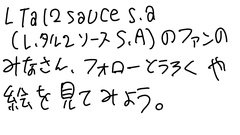 L Tal2 sauce s.a
(L.タル2 ソース S.A)のファンの
みなさん、フォローとうろく や
絵を見てみよう。